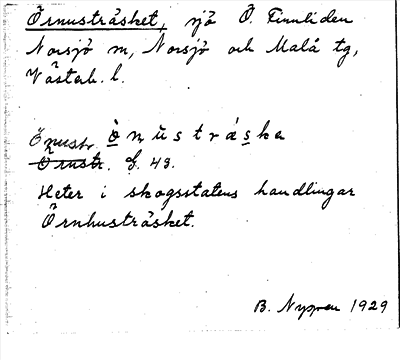 Örnusträsket, sjö Ö. Finnliden
Norsjö sn, Norsjö och Malå tg,
Västerb. l.
Önustr. ò̱ n ŭ s t r á s̱ k a
Örnustr. f. 43.
Heter i skogsstatens handlingar
Örnhusträsket.
B. Nygren 1929